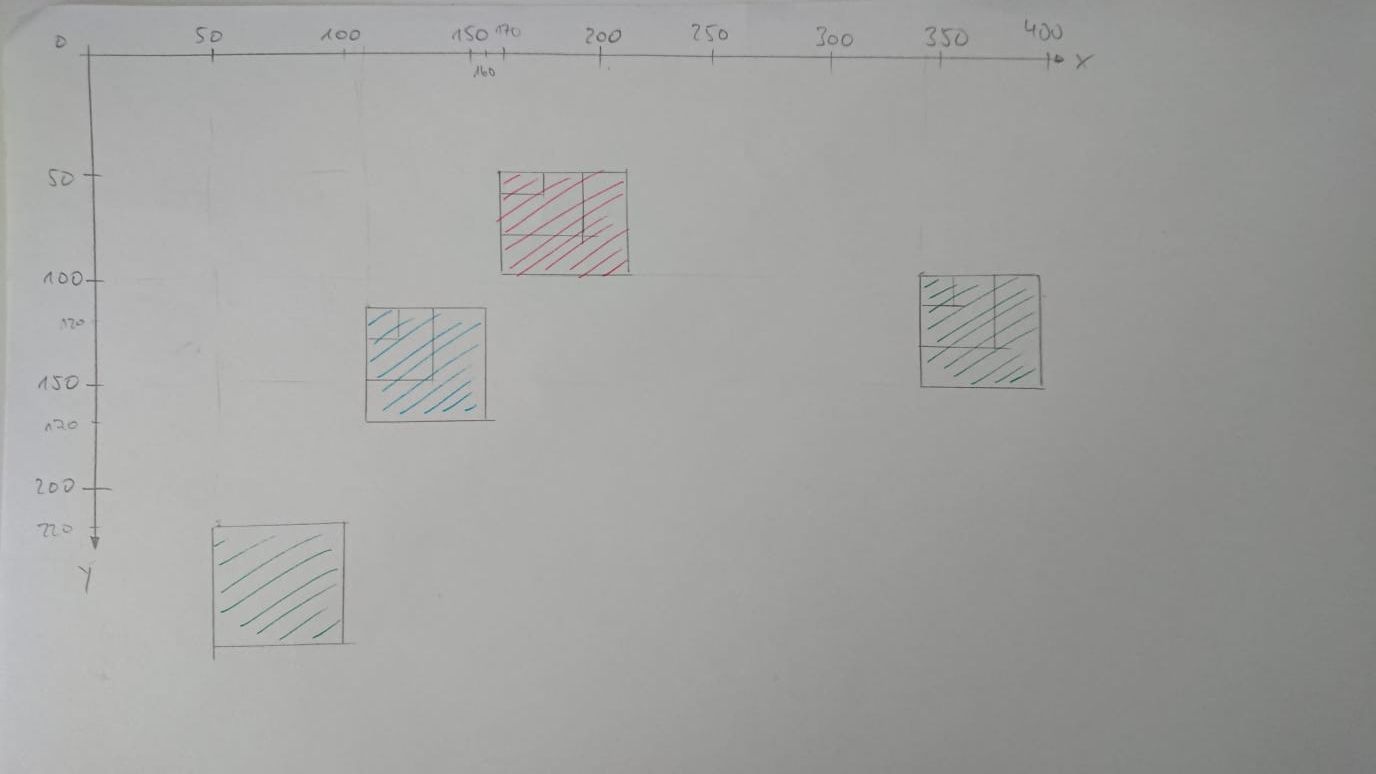 0 50 100 150 170 200 250 300 350 400
160
X
50
100
120
150
170
200
220
Y